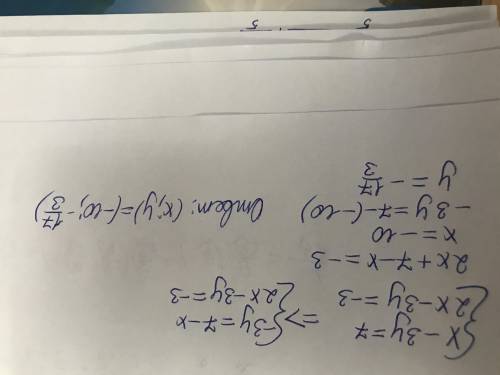 {x - 3y = 7
2x - 3y = -3
=> {-3y = 7 - x
2x - 3y = -3
2x + 7 - x = -3
x = -10
-3y = 7 - (-10)
y = - 17/3
Ответ: (x; y) = (-10; - 17/3)
5 5